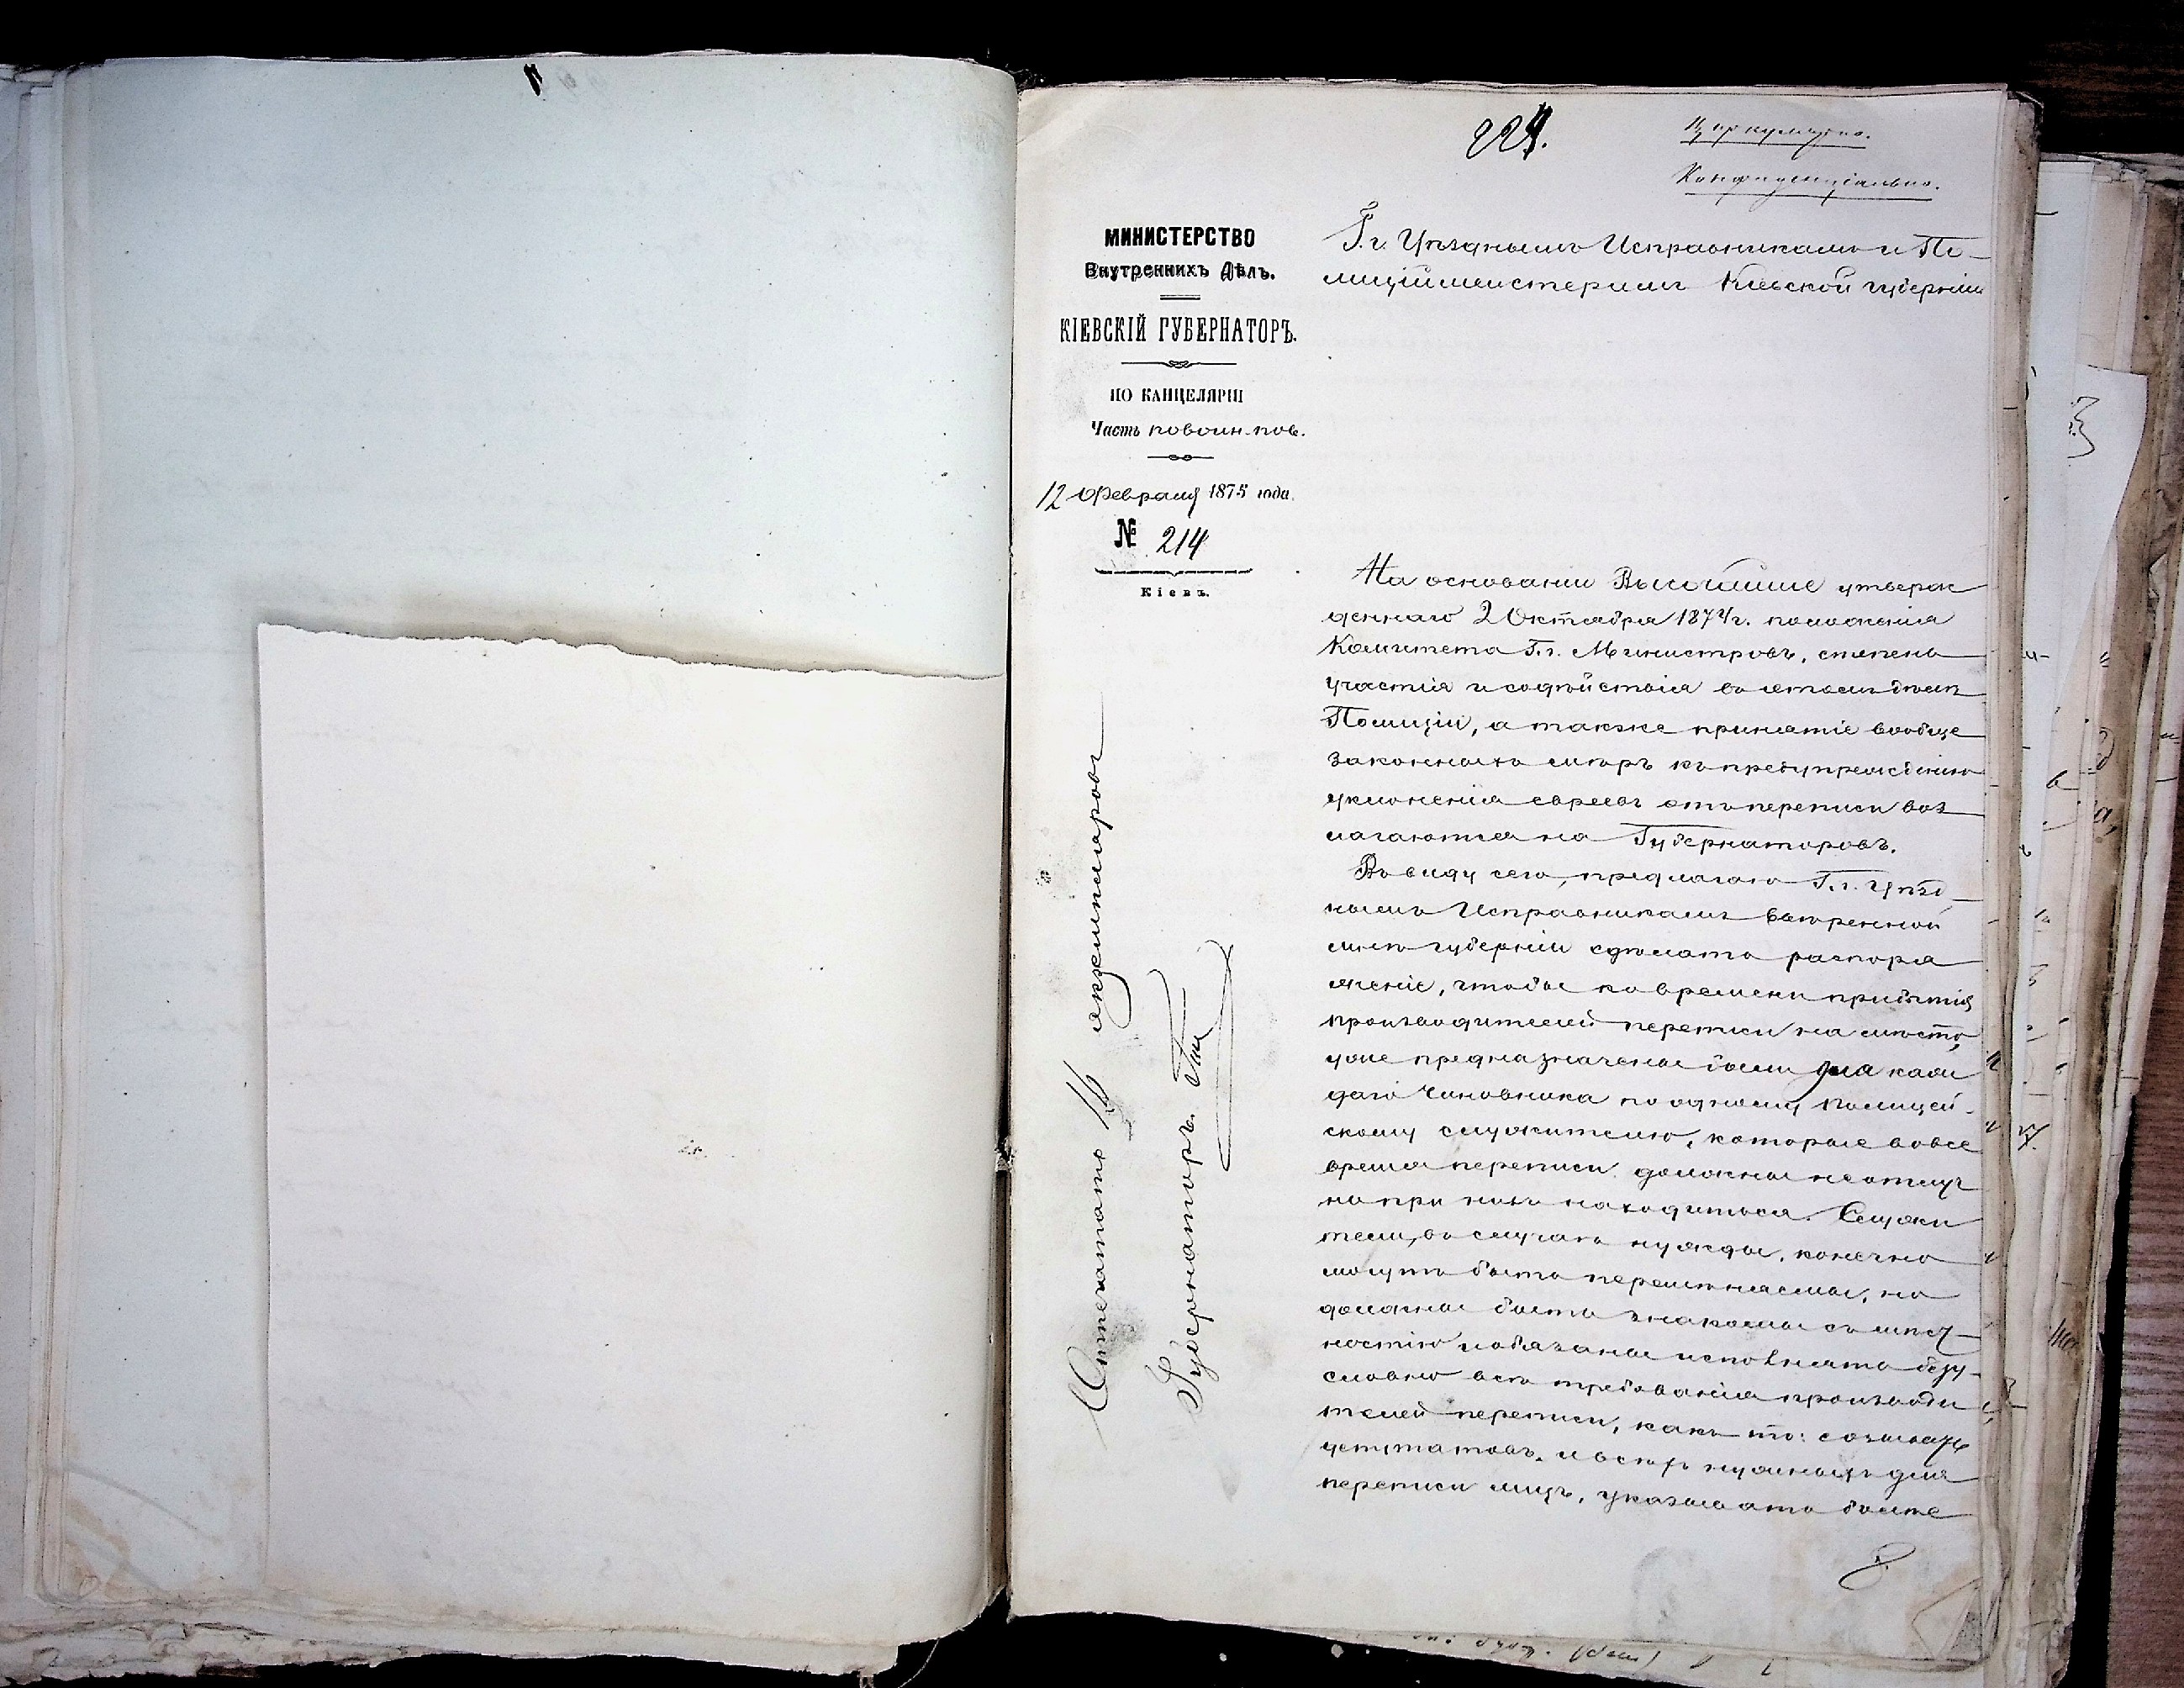 224.
Циркулярно.
Конфиденціально.
МИНИСТЕРСТВО
Внутреннихъ Дѣлъ.
КІЕВСКІЙ ГУБЕРНАТОРЪ.
ПО КАНЦЕЛЯРІИ
Часть по воин. пов.
12 Февраля 1875 года.
№ 214
Кіевъ.
Г. г. Уѣзднымъ Исправникамъ и По-
лиціймейстерамъ Кіевской губерніи
На основаніи Высочайше утверж
деннаго 2 Октября 1874 г. положенія
Комитета Г. г. Министровъ, степень
участія и содѣйствія въ этомъ дѣлѣ
Полиціи, а также принятіе вообще
законныхъ мѣръ къ предупрежденію
уклоненія евреевъ отъ переписи воз
лагаются на Губернаторовъ.
Въ виду сего, предлагаю Г. г. Уѣзд
нымъ Исправникамъ ввѣренной
мнѣ губерніи сдѣлать распоря
женіе, чтобы ко времени прибытія
производителей переписи на мѣсто,
уже предназначены были для каж
даго Чиновника по одному полицей-
скому служителю, которые во все
время переписи должны неотлуч
но при нихъ находиться. Служи
тели, въ случаѣ нужды, конечно
могутъ быть перемѣняемы, но
должны быть знакомы съ мѣст-
ностію и обязаны исполнять безу-
словно всѣ требованія производи
телей переписи, какъ то: созывать
депутатовъ и всѣхъ нужныхъ для
переписи лицъ, указывать
Отпечатано 16 экземпляровъ
Губернаторъ